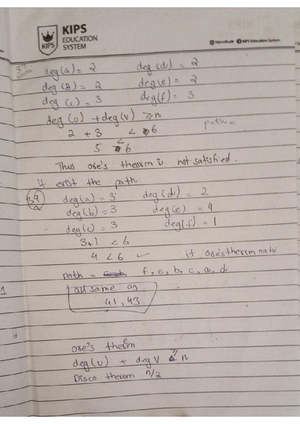 KIPS
EDUCATION
SYSTEM
KIPS Education System
deg(a) = 2 deg(d) = 2
deg(B) = 2 deg(e) = 2
deg(c) = 3 deg(f) = 3
deg(u) + deg(v) ≥ n
2 + 3 < 6
5 ≱ 6
Thus ore's theorm is not satisfied.
it exist the path
deg(a) = 3 deg(d) = 2
deg(b) = 3 deg(e) = 4
deg(c) = 3 deg(f) = 1
3+1 < 6
4 < 6 ✓ it ore's therm
path = f, e, b, c, a, d
all same as
41, 43
ore's therm
deg(u) + deg v ≥ n
Diraco theram n/2